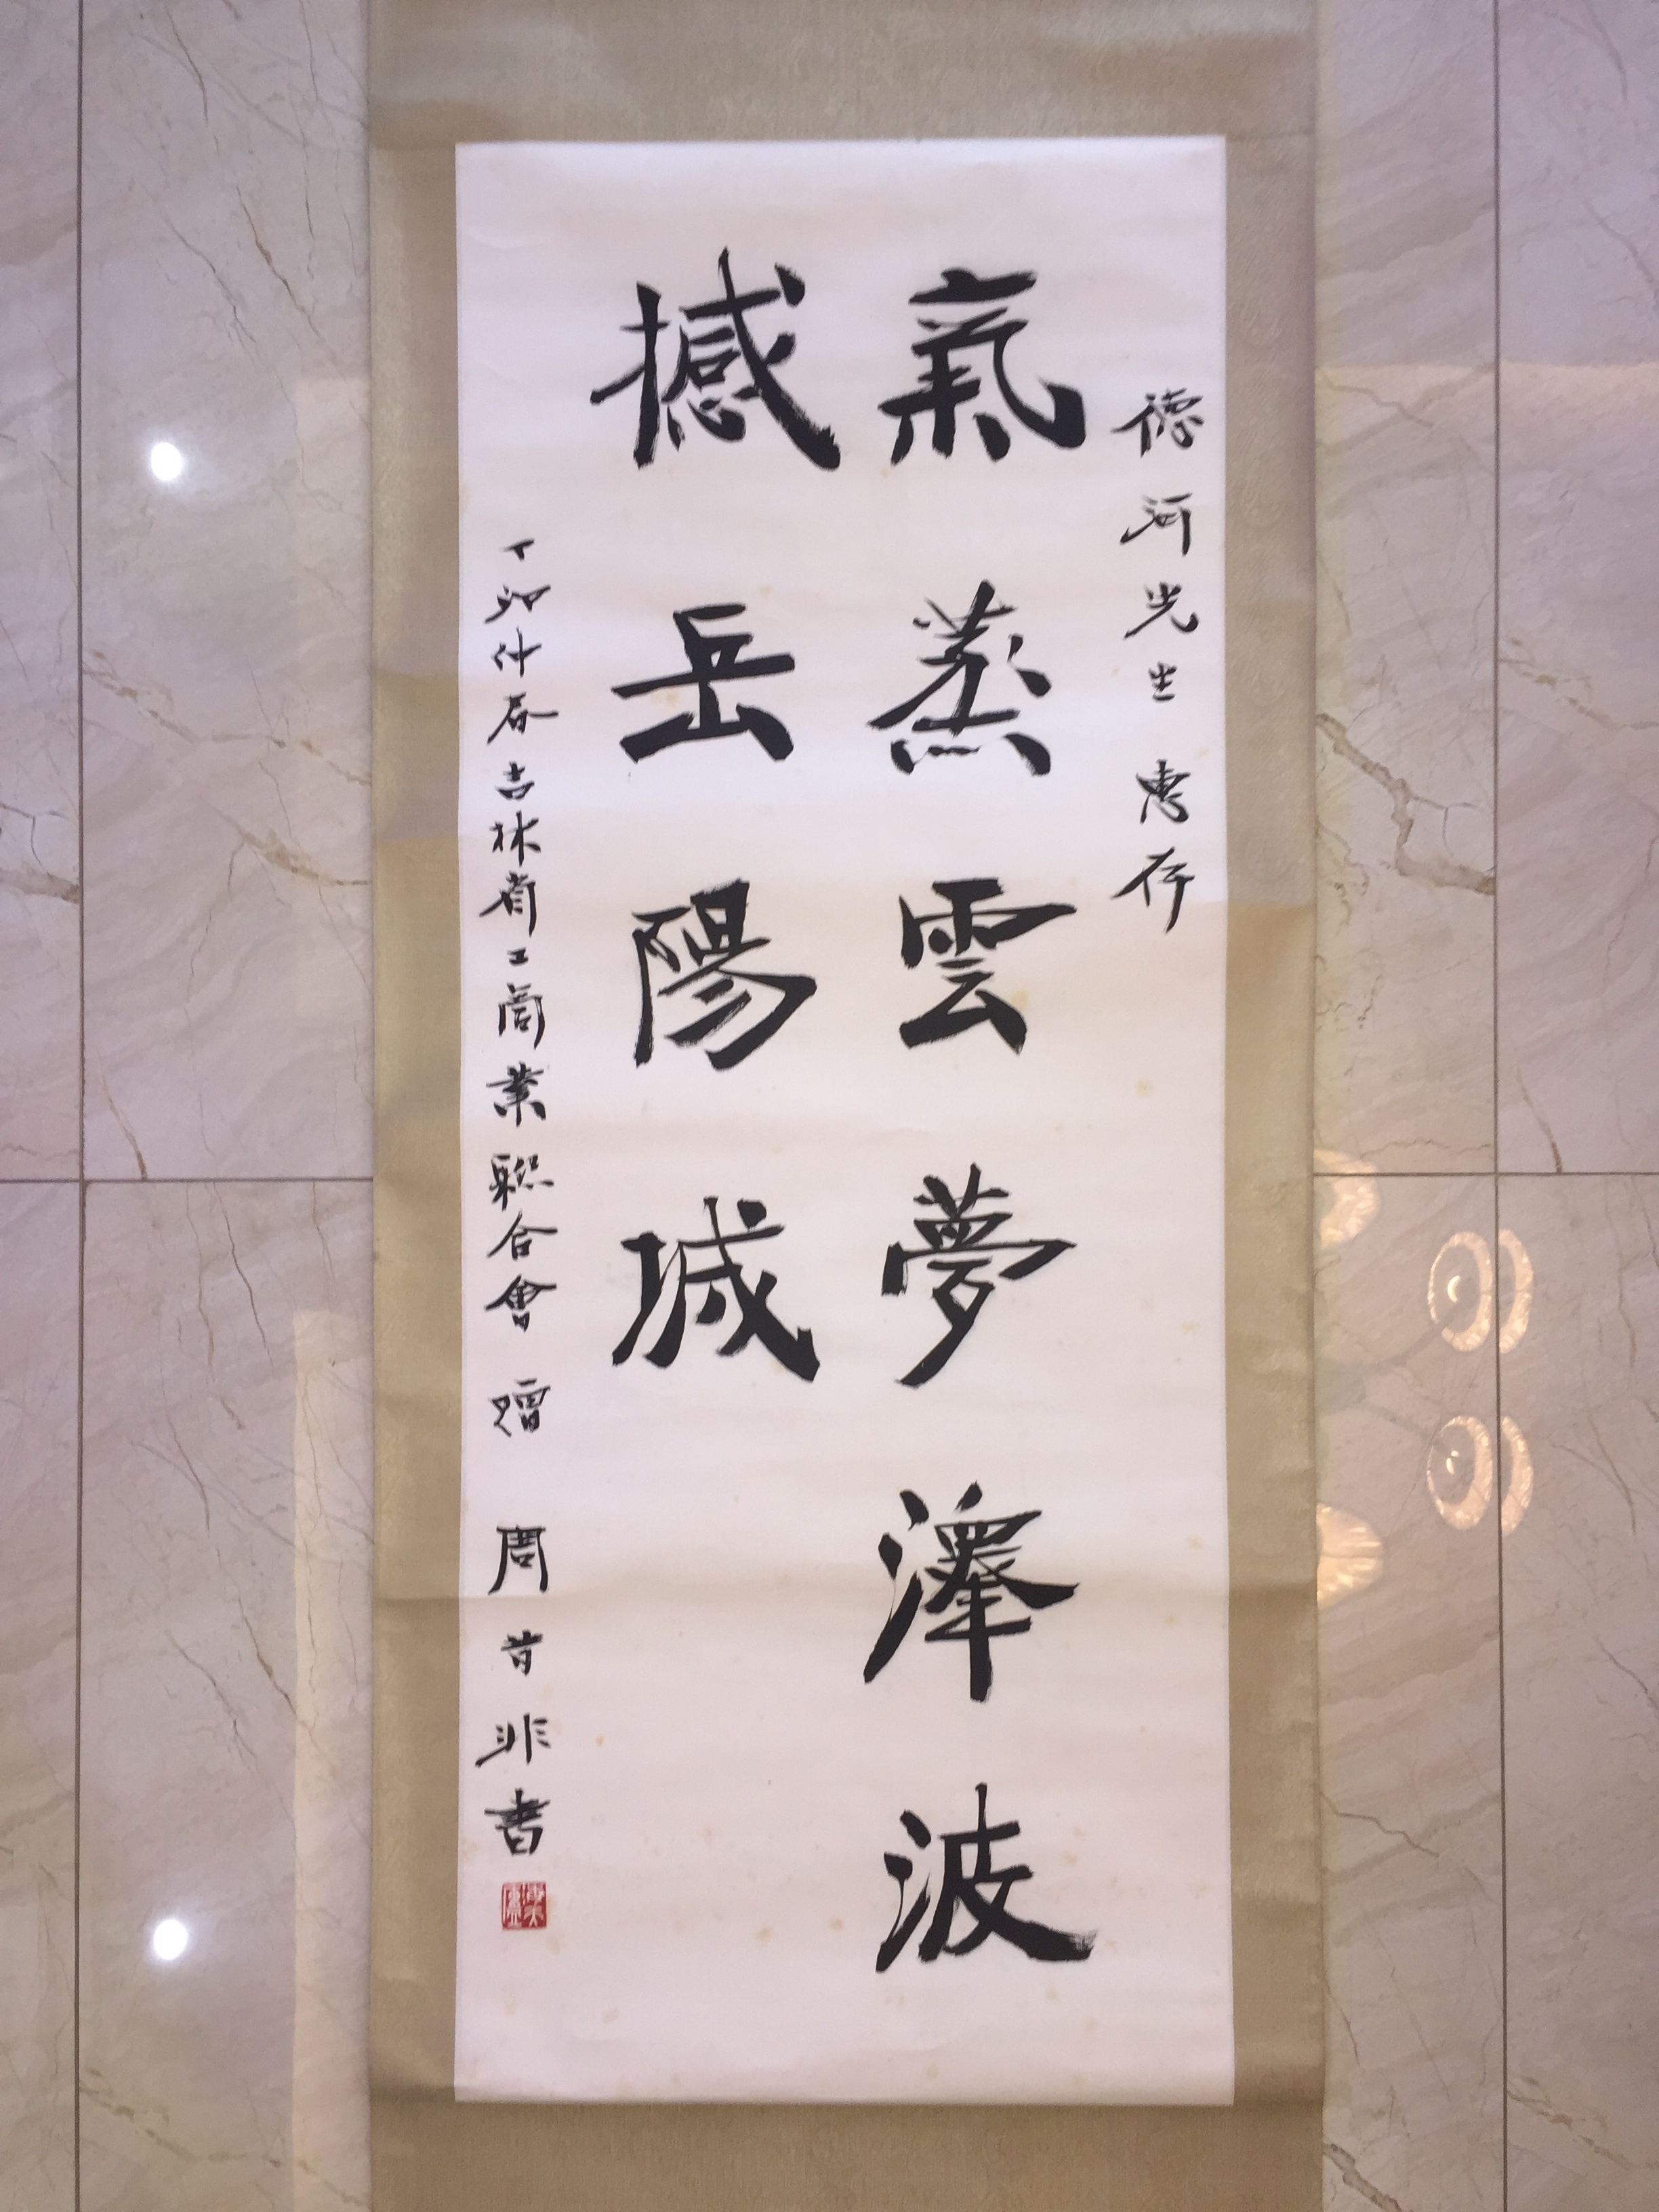 德河先生惠存
氣蒸雲夢澤波
撼岳陽城
丁卯仲春吉林省工商業聯合會贈周昔非書